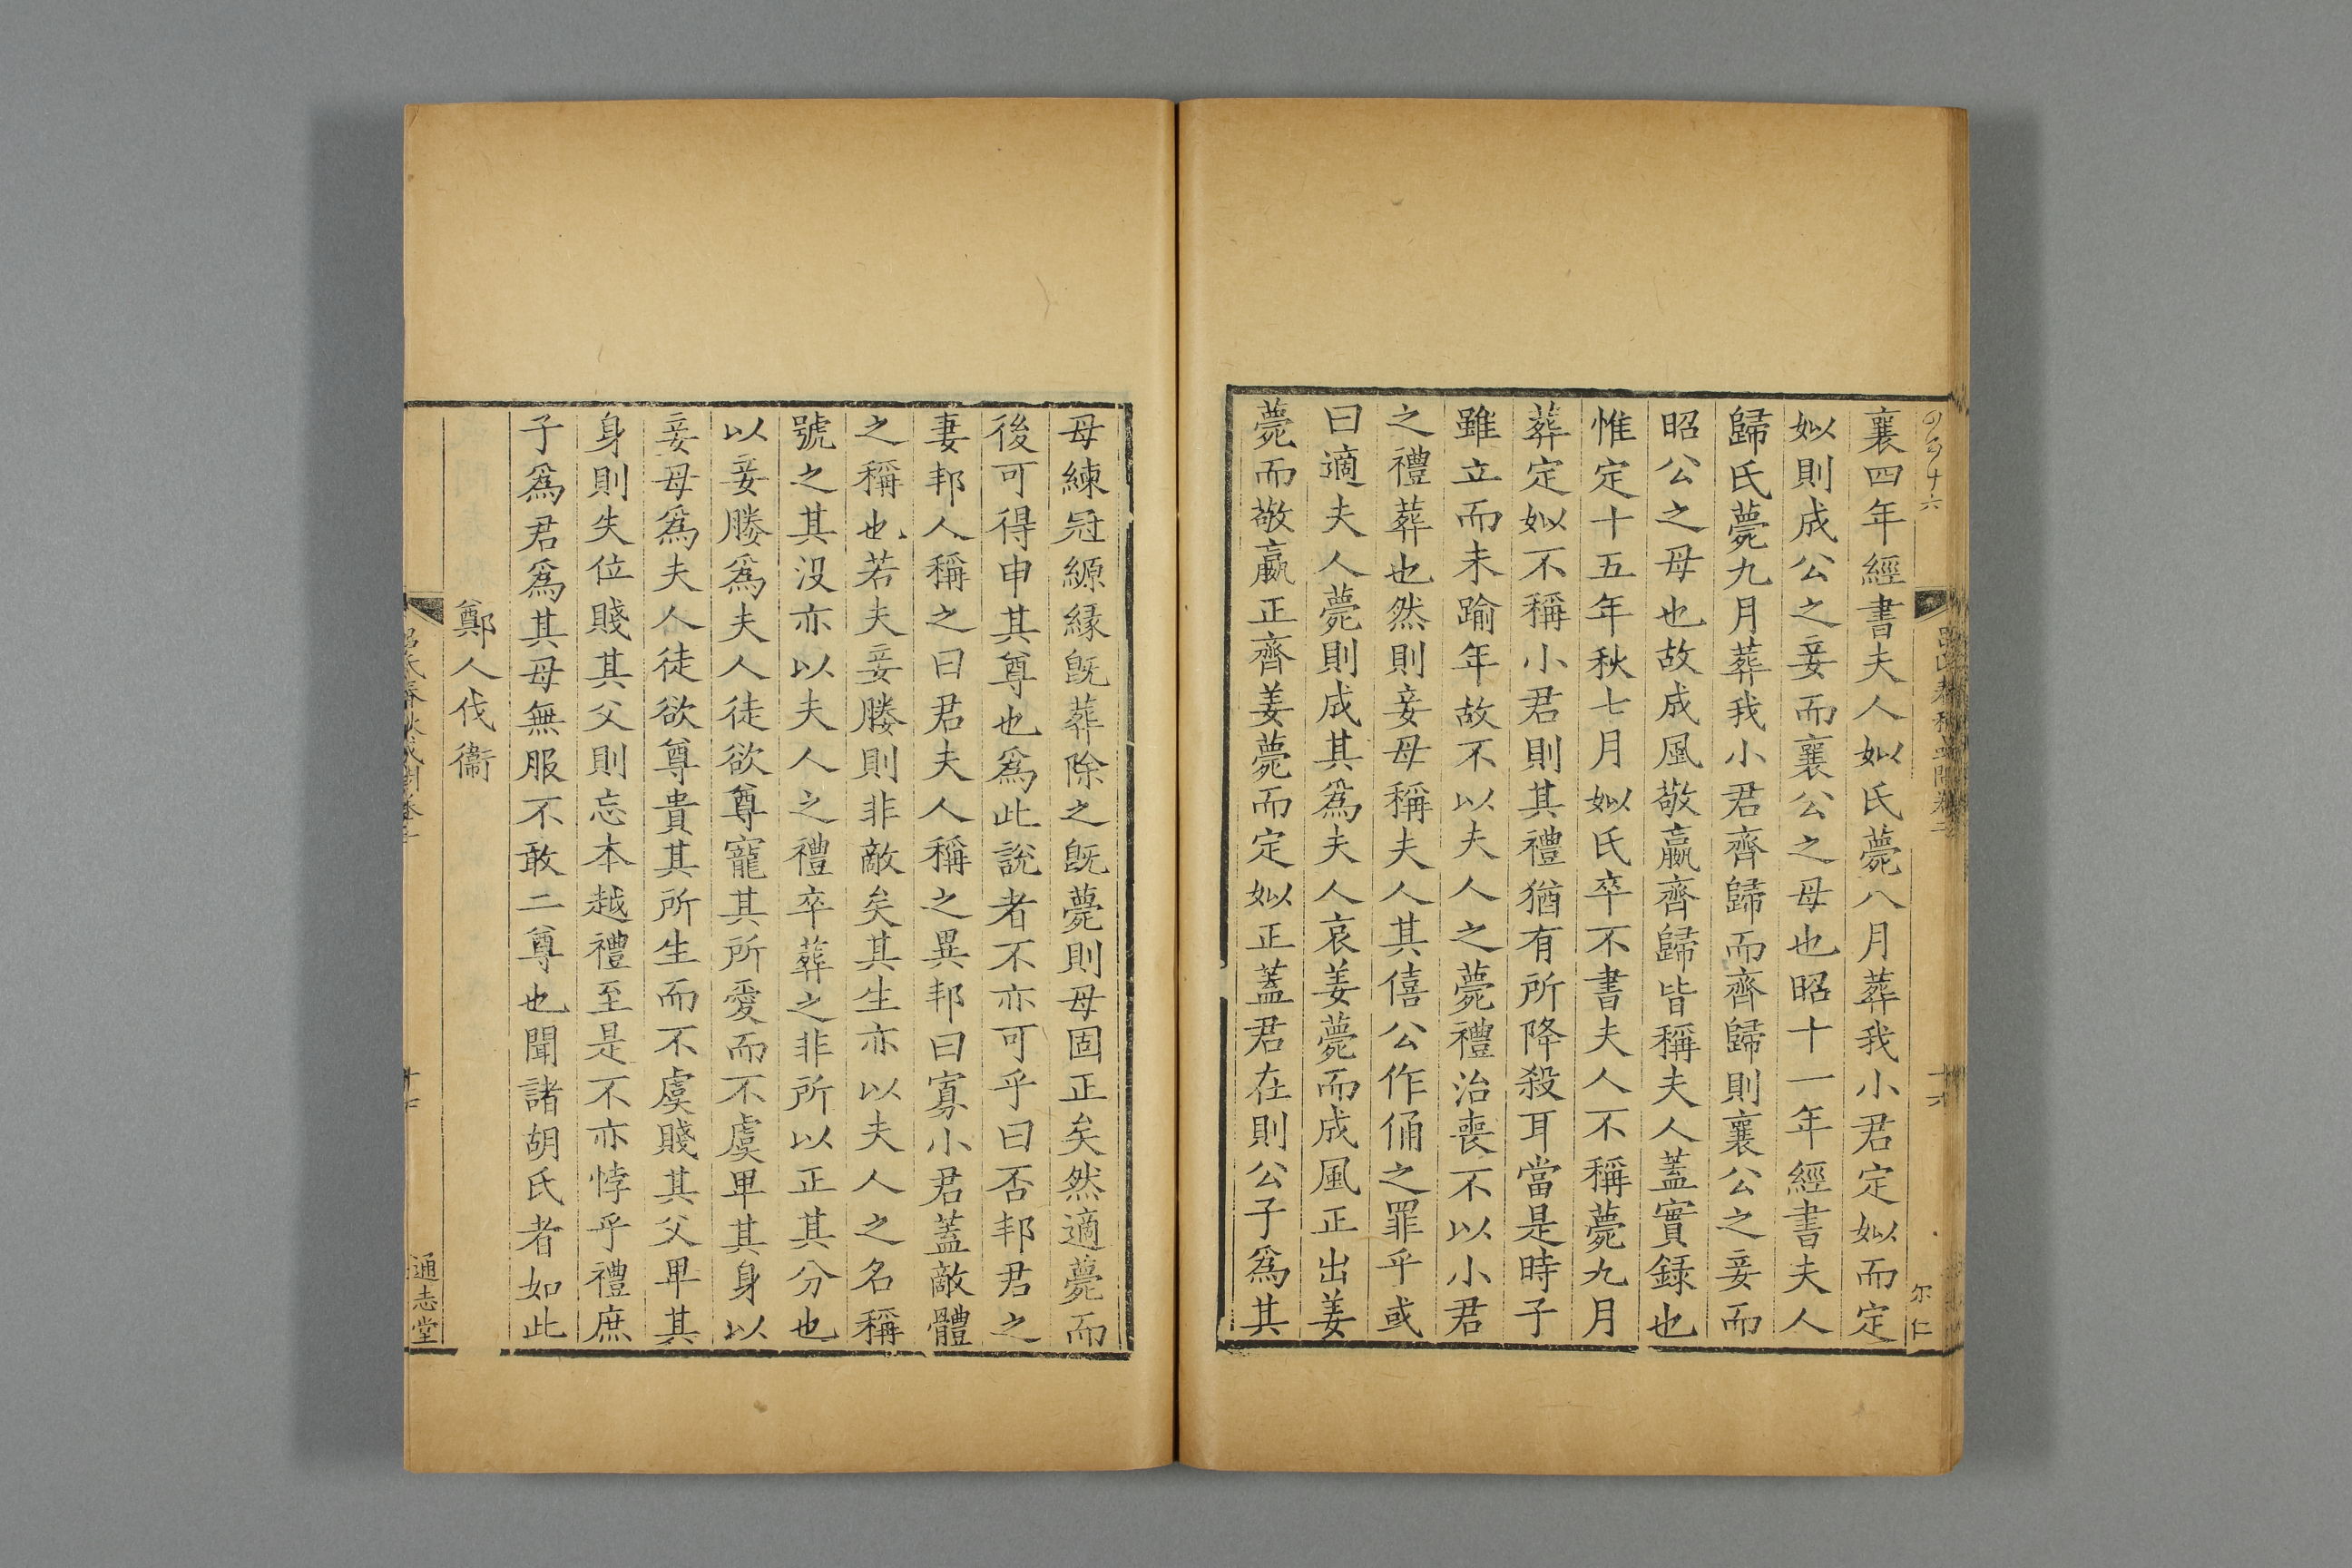 襄四年經書夫人姒氏薨八月葬我小君定姒而定
姒則成公之妾而襄公之母也昭十一年經書夫人
歸氏薨九月葬我小君齊歸而齊歸則襄公之妾而
昭公之母也故成風敬嬴齊歸皆稱夫人蓋實録也
惟定十五年秋七月姒氏卒不書夫人不稱薨九月
葬定姒不稱小君則其禮猶有所降殺耳當是時子
雖立而未踰年故不以夫人之薨禮治喪不以小君
之禮葬也然則妾母稱夫人其僖公作俑之罪乎或
曰適夫人薨則成其爲夫人哀姜薨而成風正出姜
薨而敬嬴正齊姜薨而定姒正蓋君在則公子爲其
母練冠縓緣旣葬除之旣薨則母固正矣然適薨而
後可得申其尊也爲此說者不亦可乎曰否邦君之
妻邦人稱之曰君夫人稱之異邦曰寡小君蓋敵體
之稱也若夫妾媵則非敵矣其生亦以夫人之名稱
號之其没亦以夫人之禮卒葬之非所以正其分也
以妾媵爲夫人徒欲尊寵其所愛而不虞卑其身以
妾母爲夫人徒欲尊貴其所生而不虞賤其父卑其
身則失位賤其父則忘本越禮至是不亦悖乎禮庶
子爲君爲其母無服不敢二尊也聞諸胡氏者如此
鄭人伐衞
吕氏春秋或問卷十
十七
通志堂